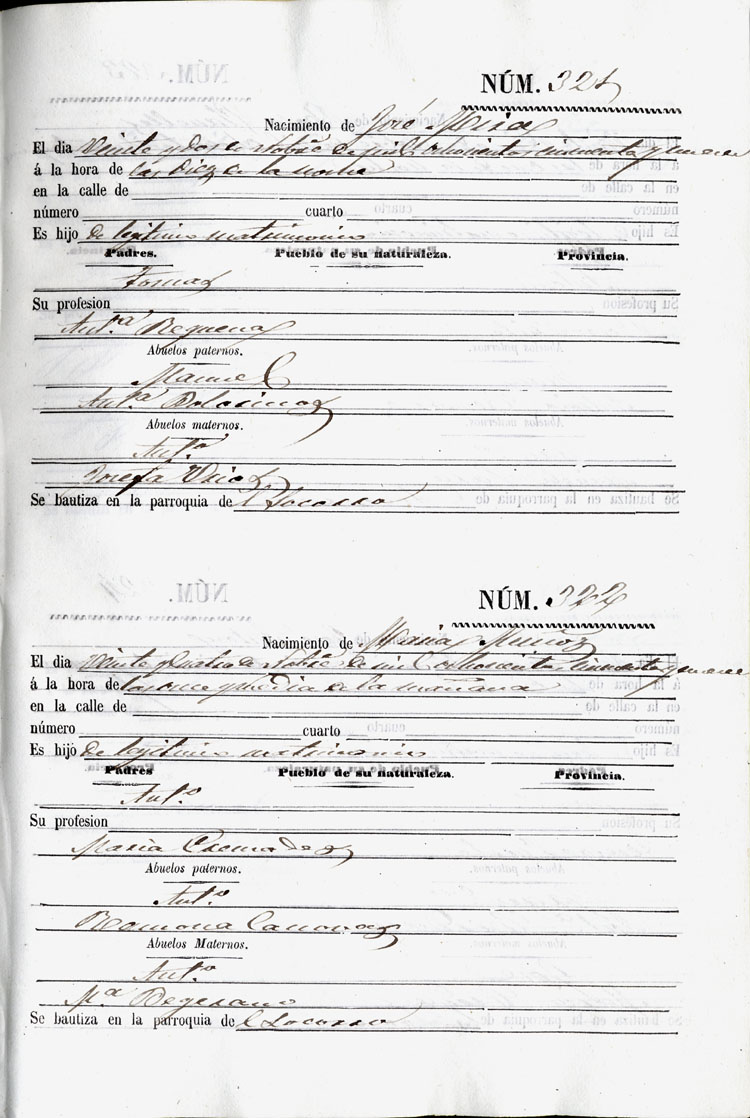 NÚM. 321
Nacimiento de José Mira
El día Veinte y dos de Octubre de mil ochocientos cincuenta y nueve
á la hora de las diez de la noche
en la calle de
número cuarto
Es hijo de legitimo matrimonio
Padres. Pueblo de su naturaleza. Provincia.
Tomas
Su profesion
Ant.ª Requena
Abuelos paternos.
Manuel
Ant.ª
Abuelos maternos.
Ant.º
Josefa
Se bautiza en la parroquia de el Socorro
NÚM. 322
Nacimiento de Maria Muñoz
El dia Veinte y cuatro de Octubre de mil ochocientos cincuenta y nueve
á la hora de las once y media de la mañana
en la calle de
número cuarto
Es hijo de legitimo matrimonio
Padres Pueblo de su naturaleza. Provincia.
Ant.º
Su profesion
Maria
Abuelos paternos.
Ant.º
Ramona Canovas
Abuelos Maternos.
Ant.º
M.ª Bejerano
Se bautiza en la parroquia de el Socorro